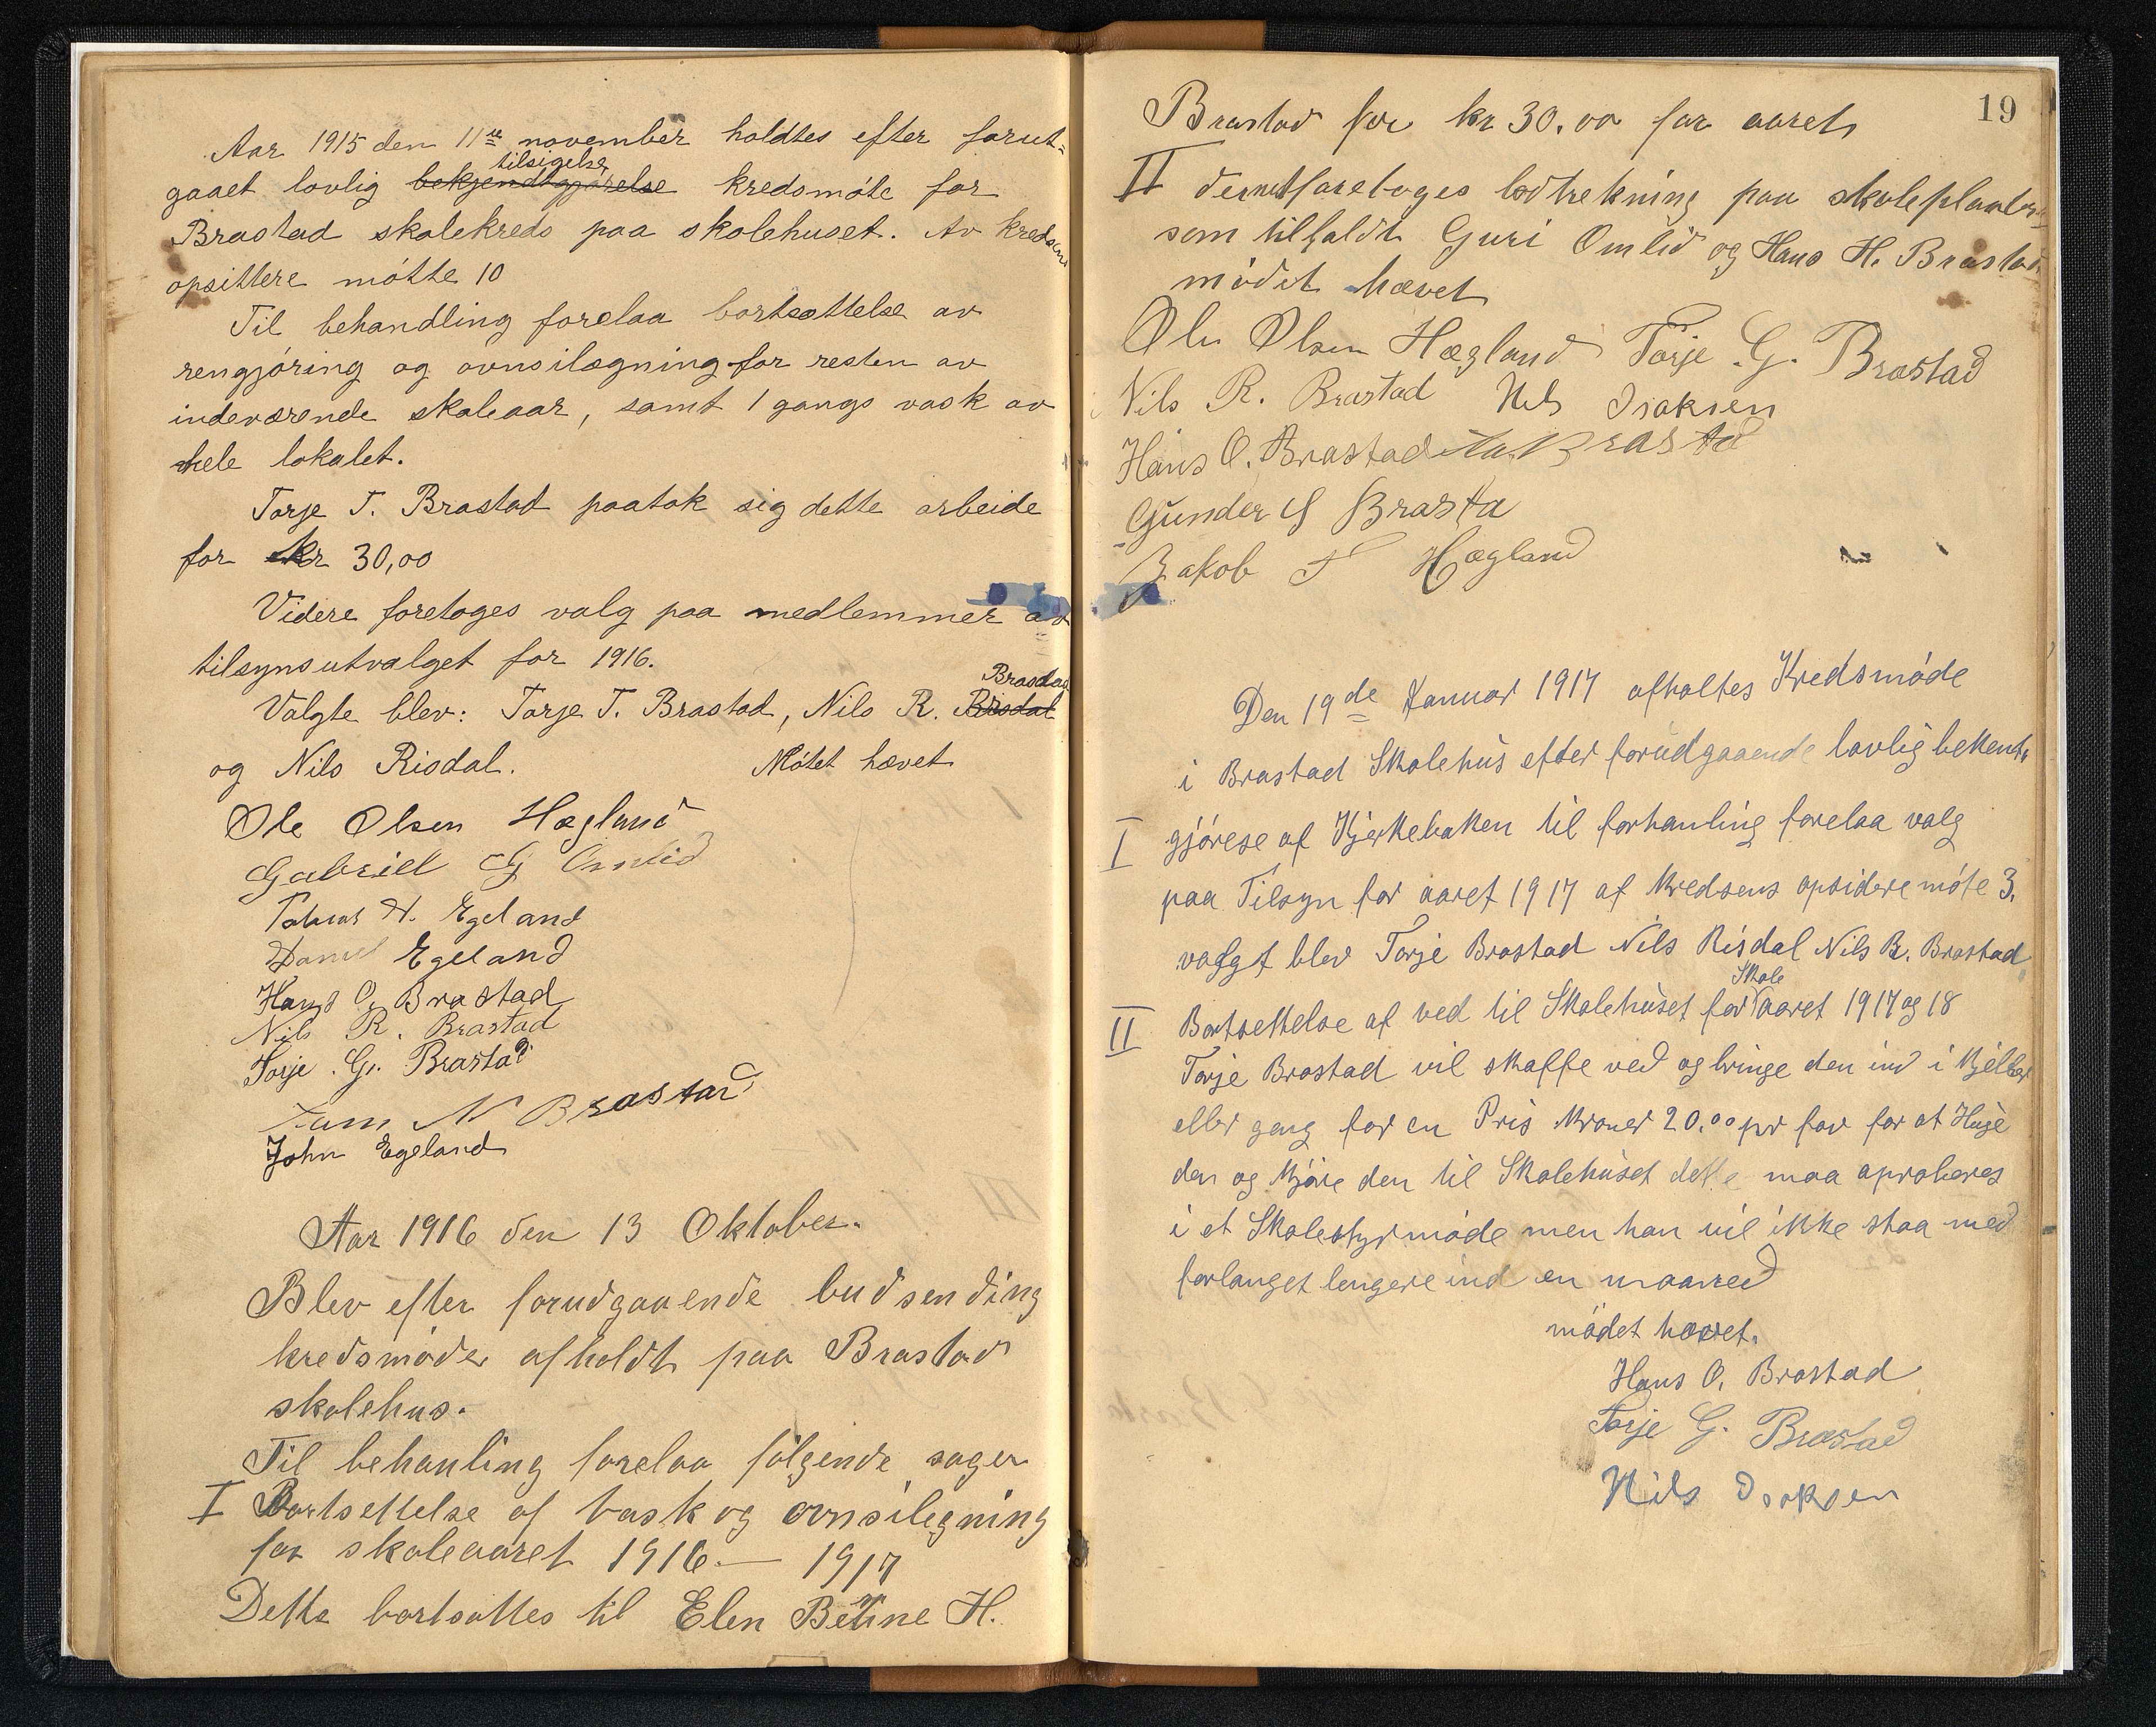 Aar 1915 den 11te november holdtes efter forut=
tilsigelse
gaaet lovlig bekjendtgjørelse kredsmøte for
Brastad skolekreds paa skolehuset. Av kredsens
opsittere møtte 10
Til behandling forelaa bortsættelse av
rengjøring og ovnsilægning for resten av
indeværende skoleaar, samt 1 gangs vask av
hele lokalet.
Torje T. Brastad paatok sig dette arbeide
for kr 30,00
Videre foretoges valg paa medlemmer av
tilsynsutvalget for 1916.
Brasdad
Valgte blev: Torje T. Brastad, Nils R. Risdal
og Nils Risdal. Møtet hævet
Ole Olsen Hægland
Gabriell G Omlid
Tobias N. Egeland
Daniel Egeland
Hans O. Brastad
Nils R. Brastad
Torje G. Brastad
N Brastad
John Egeland
Aar 1916 den 13 Oktober.
Blev efter forudgaaende budsending
kredsmøde afholdt paa Brastad
skolehus.
Til behanling forelaa følgende sager
I Bortsettelse af vask og ovnsilegning
for skoleaaret 1916 — 1917
Dette bortsattes til Elen Betine H.
19
Brastad for kr 30.00 for aaret
II dernest foretoges lodtrekning paa skolepladser
som tilfaldt Guri Omlid og Hans H. Brastad
mødet hævet
Ole Olsen Hægland Torje G. Brastad
Nils R. Brastad Nils Isaksen
Hans O. Brastad Brastad
Gunder G Brasta
Jakob T Hægland
Den 19de Januar 1917 afholtes Kredsmøde
i Brastad Skolehus efter forudgaaende lovlig bekent,
I gjørese af Kjerkebakken til forhanling forelaa valg
paa Tilsyn for aaret 1917 af kredsens opsidere møte 3.
valgt blev Torje Brastad Nils Risdal Nils R. Brastad
Skole
II Bortsettelse af ved til Skolehuset for aaret 1917 og 18
Torje Brastad vil skaffe ved og bringe den ind i Kjelber
eller gang for en Pris kroner 20.00 pr fav for at Huge
den og kjøre den til Skolehuset dette maa aproberes
i et Skolestyrmøde men han vil ikke staa med
forlanget lengere ind en maaned
mødet hævet.
Hans O. Brastad
Torje G. Brastad
Nils Isaksen